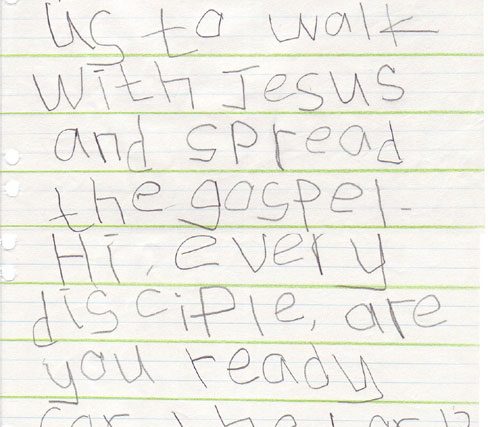 us to walk
with Jesus
and spread
the gospel.
Hi, every
disciple, are
you ready